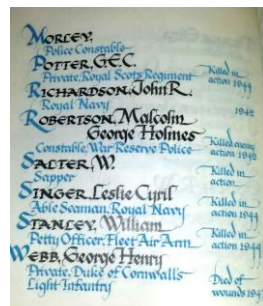 MORLEY,
Police Constable
POTTER, G.E.C.
Private, Royal Scots Regiment Killed in action 1944
RICHARDSON, John R.
Royal Navy 1942
ROBERTSON, Malcolm
George Holmes
Constable, War Reserve Police Killed enemy action 1942
SALTER, W.
Sapper Killed in action
SINGER, Leslie Cyril
Able Seaman, Royal Navy Killed in action 1944
STANLEY, William
Petty Officer, Fleet Air Arm Killed in action 1944
WEBB, George Henry
Private, Duke of Cornwalls
Light Infantry Died of wounds